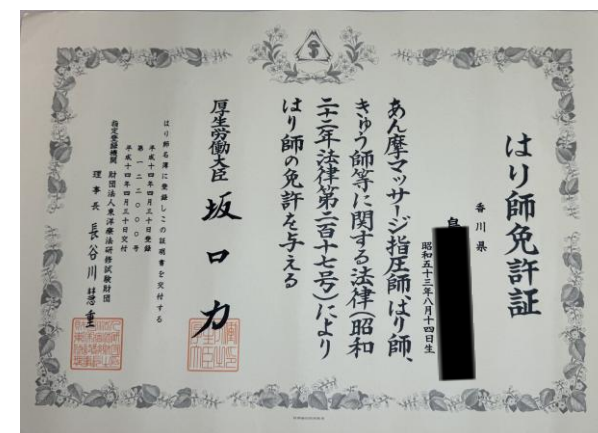 はり師免許証
香川県
昭和五十三年八月十四日生
あん摩マッサージ指圧師、はり師、
きゅう師等に関する法律(昭和
二十二年法律第二百十七号)により
はり師の免許を与える
厚生労働大臣 坂口力
はり師名簿に登録しこの証明書を交付する
平成十四年四月三十日登録
第一二二〇〇〇号
平成十四年四月三十日交付
指定登録機関 財団法人東洋療法研修試験財団
理事長 長谷川慧重